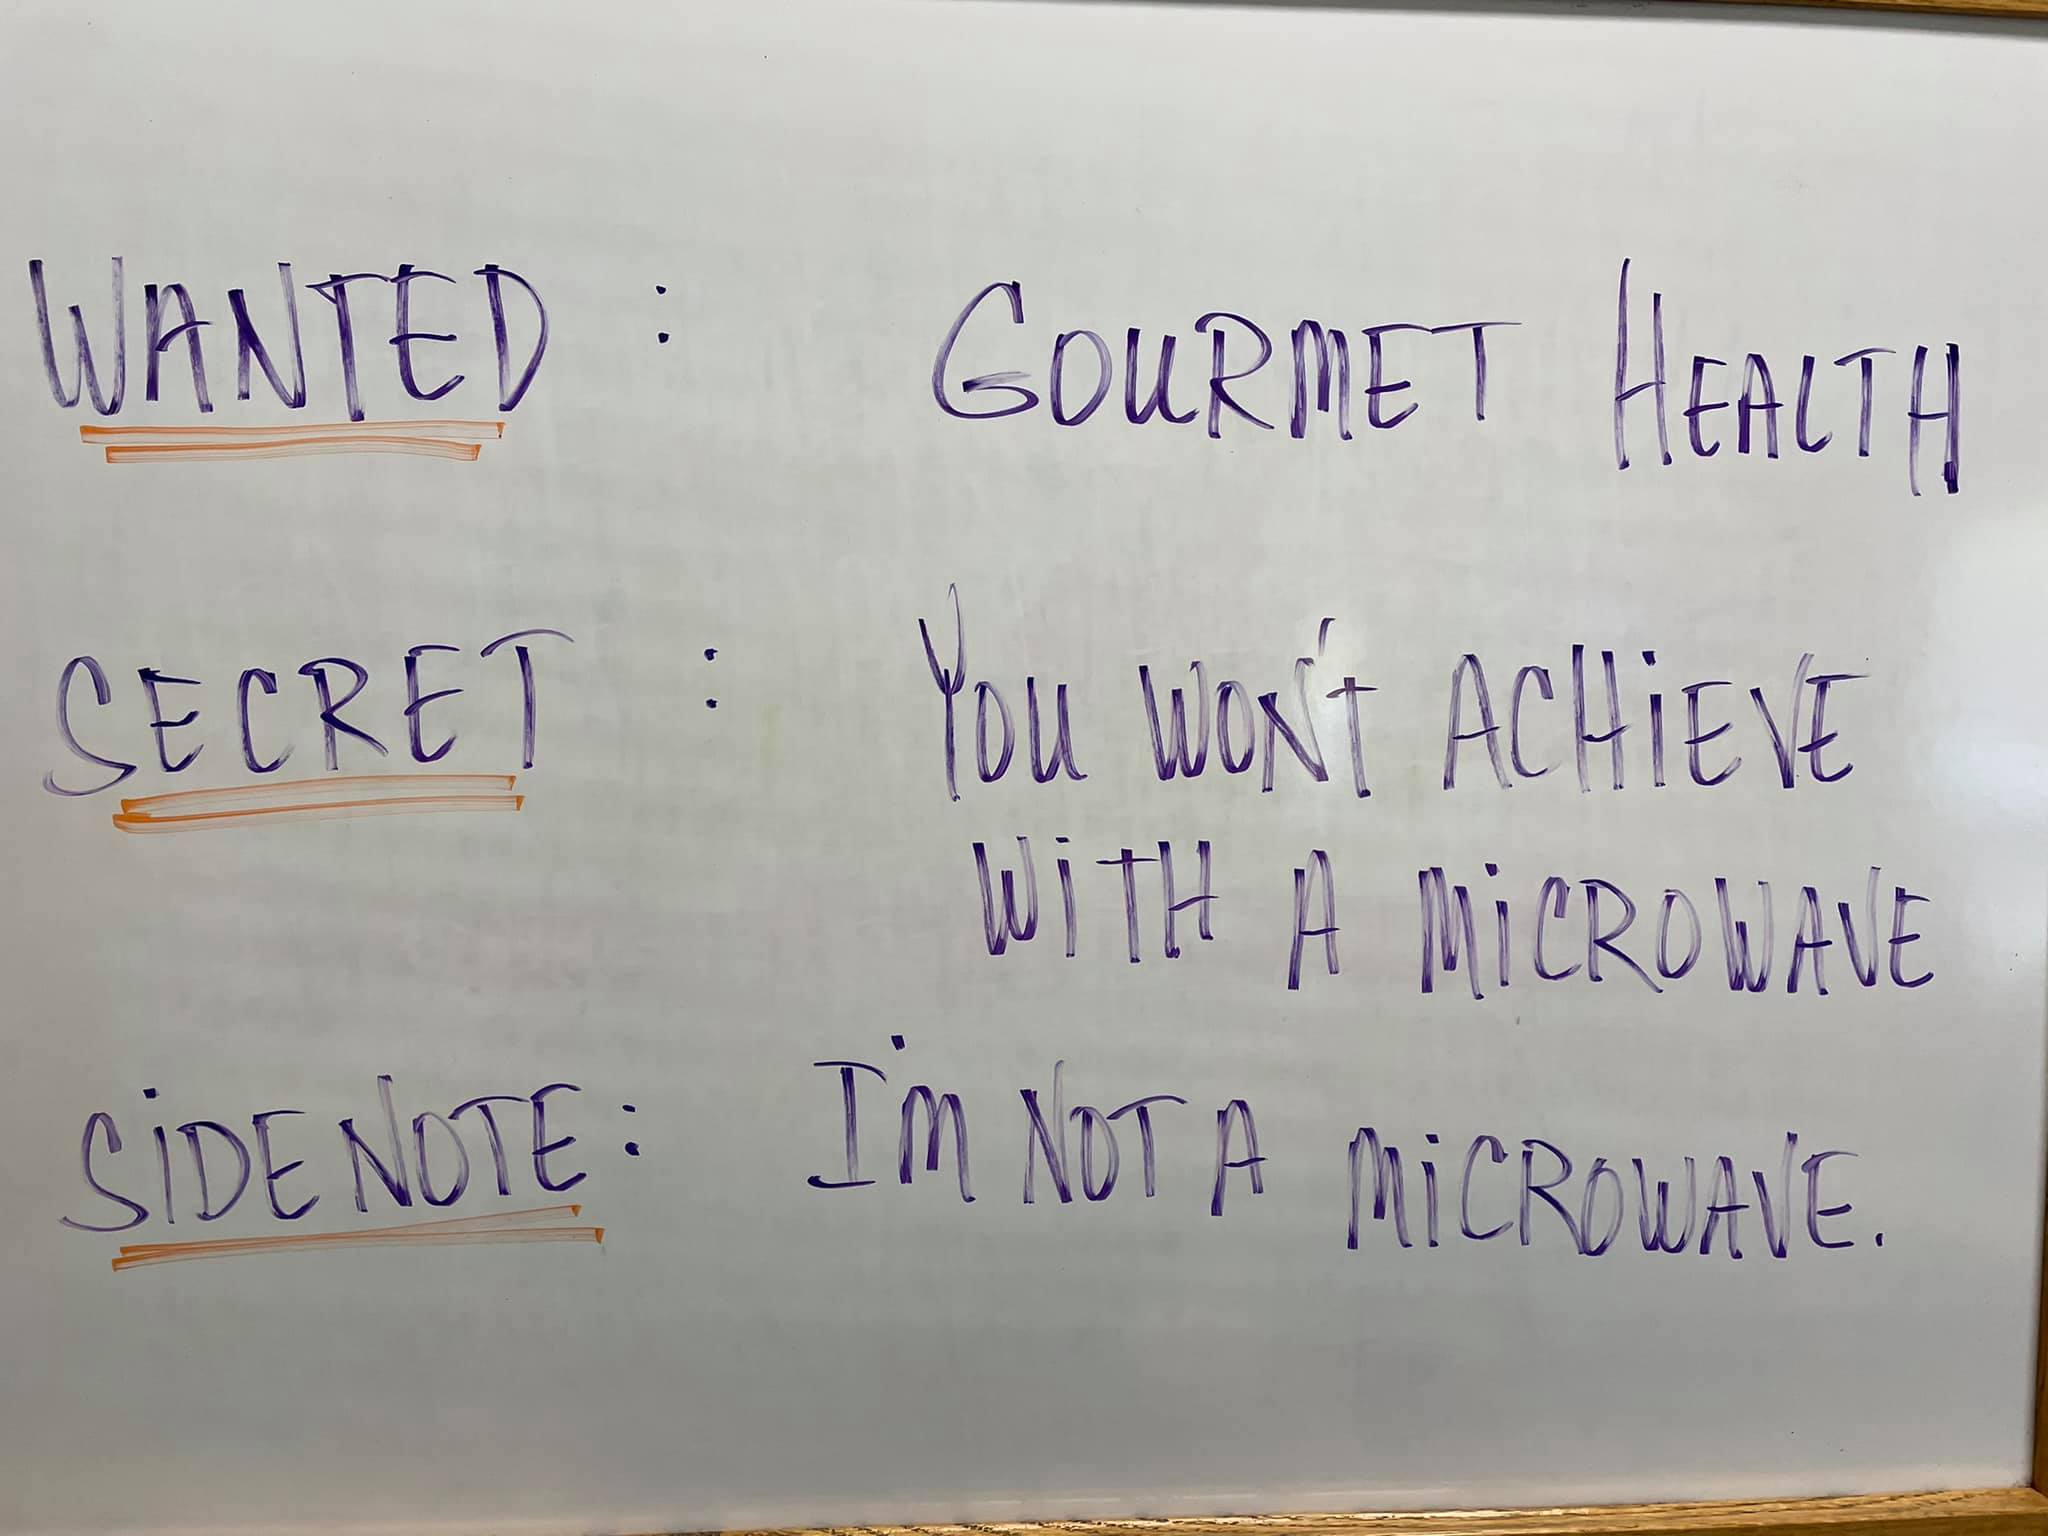 WANTED : GOURMET HEALTH
SECRET : YOU WON'T ACHIEVE
WITH A MICROWAVE
SIDE NOTE: I'M NOT A MICROWAVE.